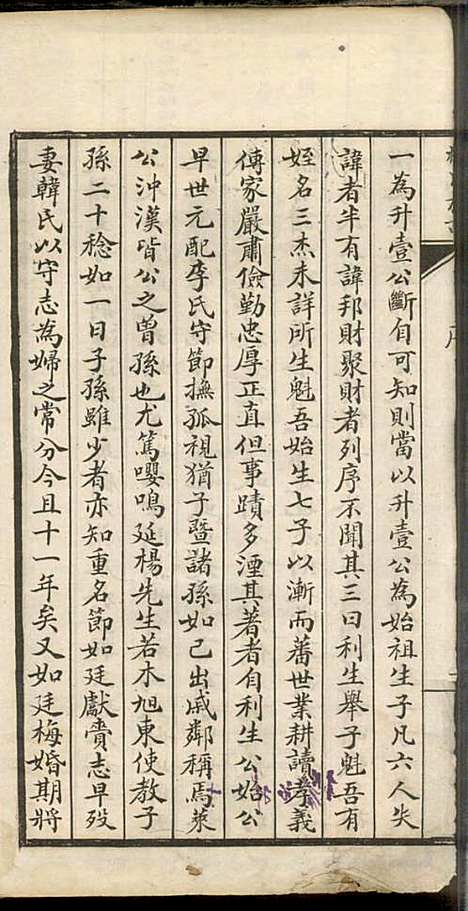 一為升壹公斷自可知則當以升壹公為始祖生子凡六人失
諱者半有諱邦財聚財者列序不聞其三曰利生舉子魁吾有
姪名三杰未詳所生魁吾始生七子以漸而蕃世業耕讀孝義
傳家嚴肅儉勤忠厚正直但事蹟多湮其著者自利生公始公
早世元配李氏守節撫孤視猶子暨諸孫如己出戚鄰稱焉萊
公沖漢皆公之曾孫也尤篤嚶鳴延楊先生若木旭東使教子
孫二十稔如一日子孫雖少者亦知重名節如廷獻賫志早歿
妻韓氏以守志為婦之常分今且十一年矣又如廷梅婚期將
序